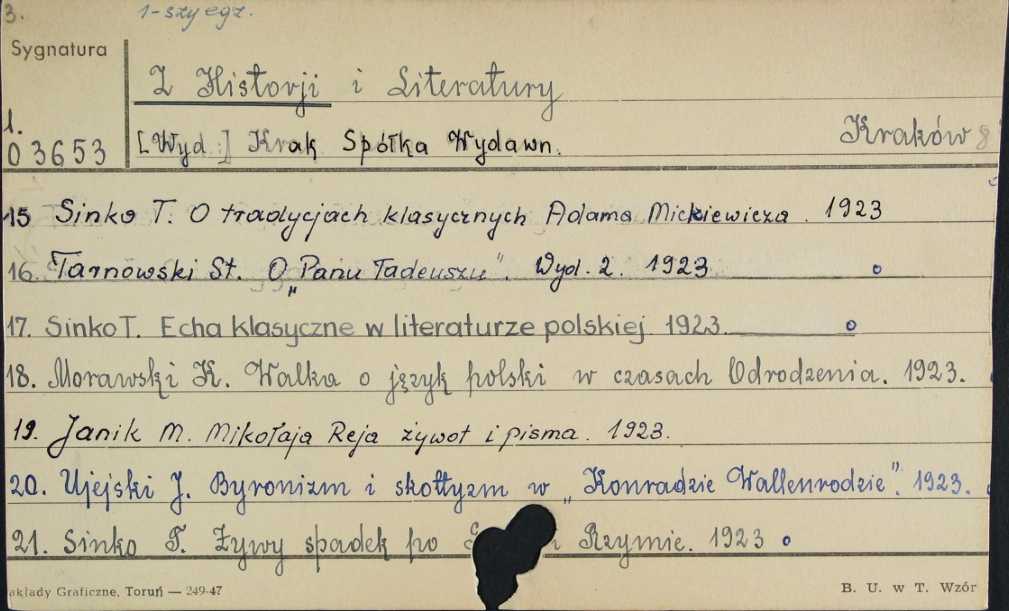 3. 1-szy egz.
Sygnatura
Z Historji i Literatury
1.
03653 [Wyd.] Krak Spółka Wydawn. Kraków 8
15 Sinko T. O tradycjach klasycznych Adama Mickiewicza. 1923
16. Tarnowski St. O „Panu Tadeuszu". Wyd. 2. 1923
17. Sinko T. Echa klasyczne w literaturze polskiej 1923.
18. Morawski K. Walka o język polski w czasach Odrodzenia. 1923.
19. Janik M. Mikołaja Reja żywot i pisma. 1923.
20. Ujejski J. Byronizm i skottyzm w „Konradzie Wallenrodzie". 1923.
21. Sinko T. Żywy spadek po i Rzymie. 1923
akłady Graficzne, Toruń — 249-47 B. U. w T. Wzór